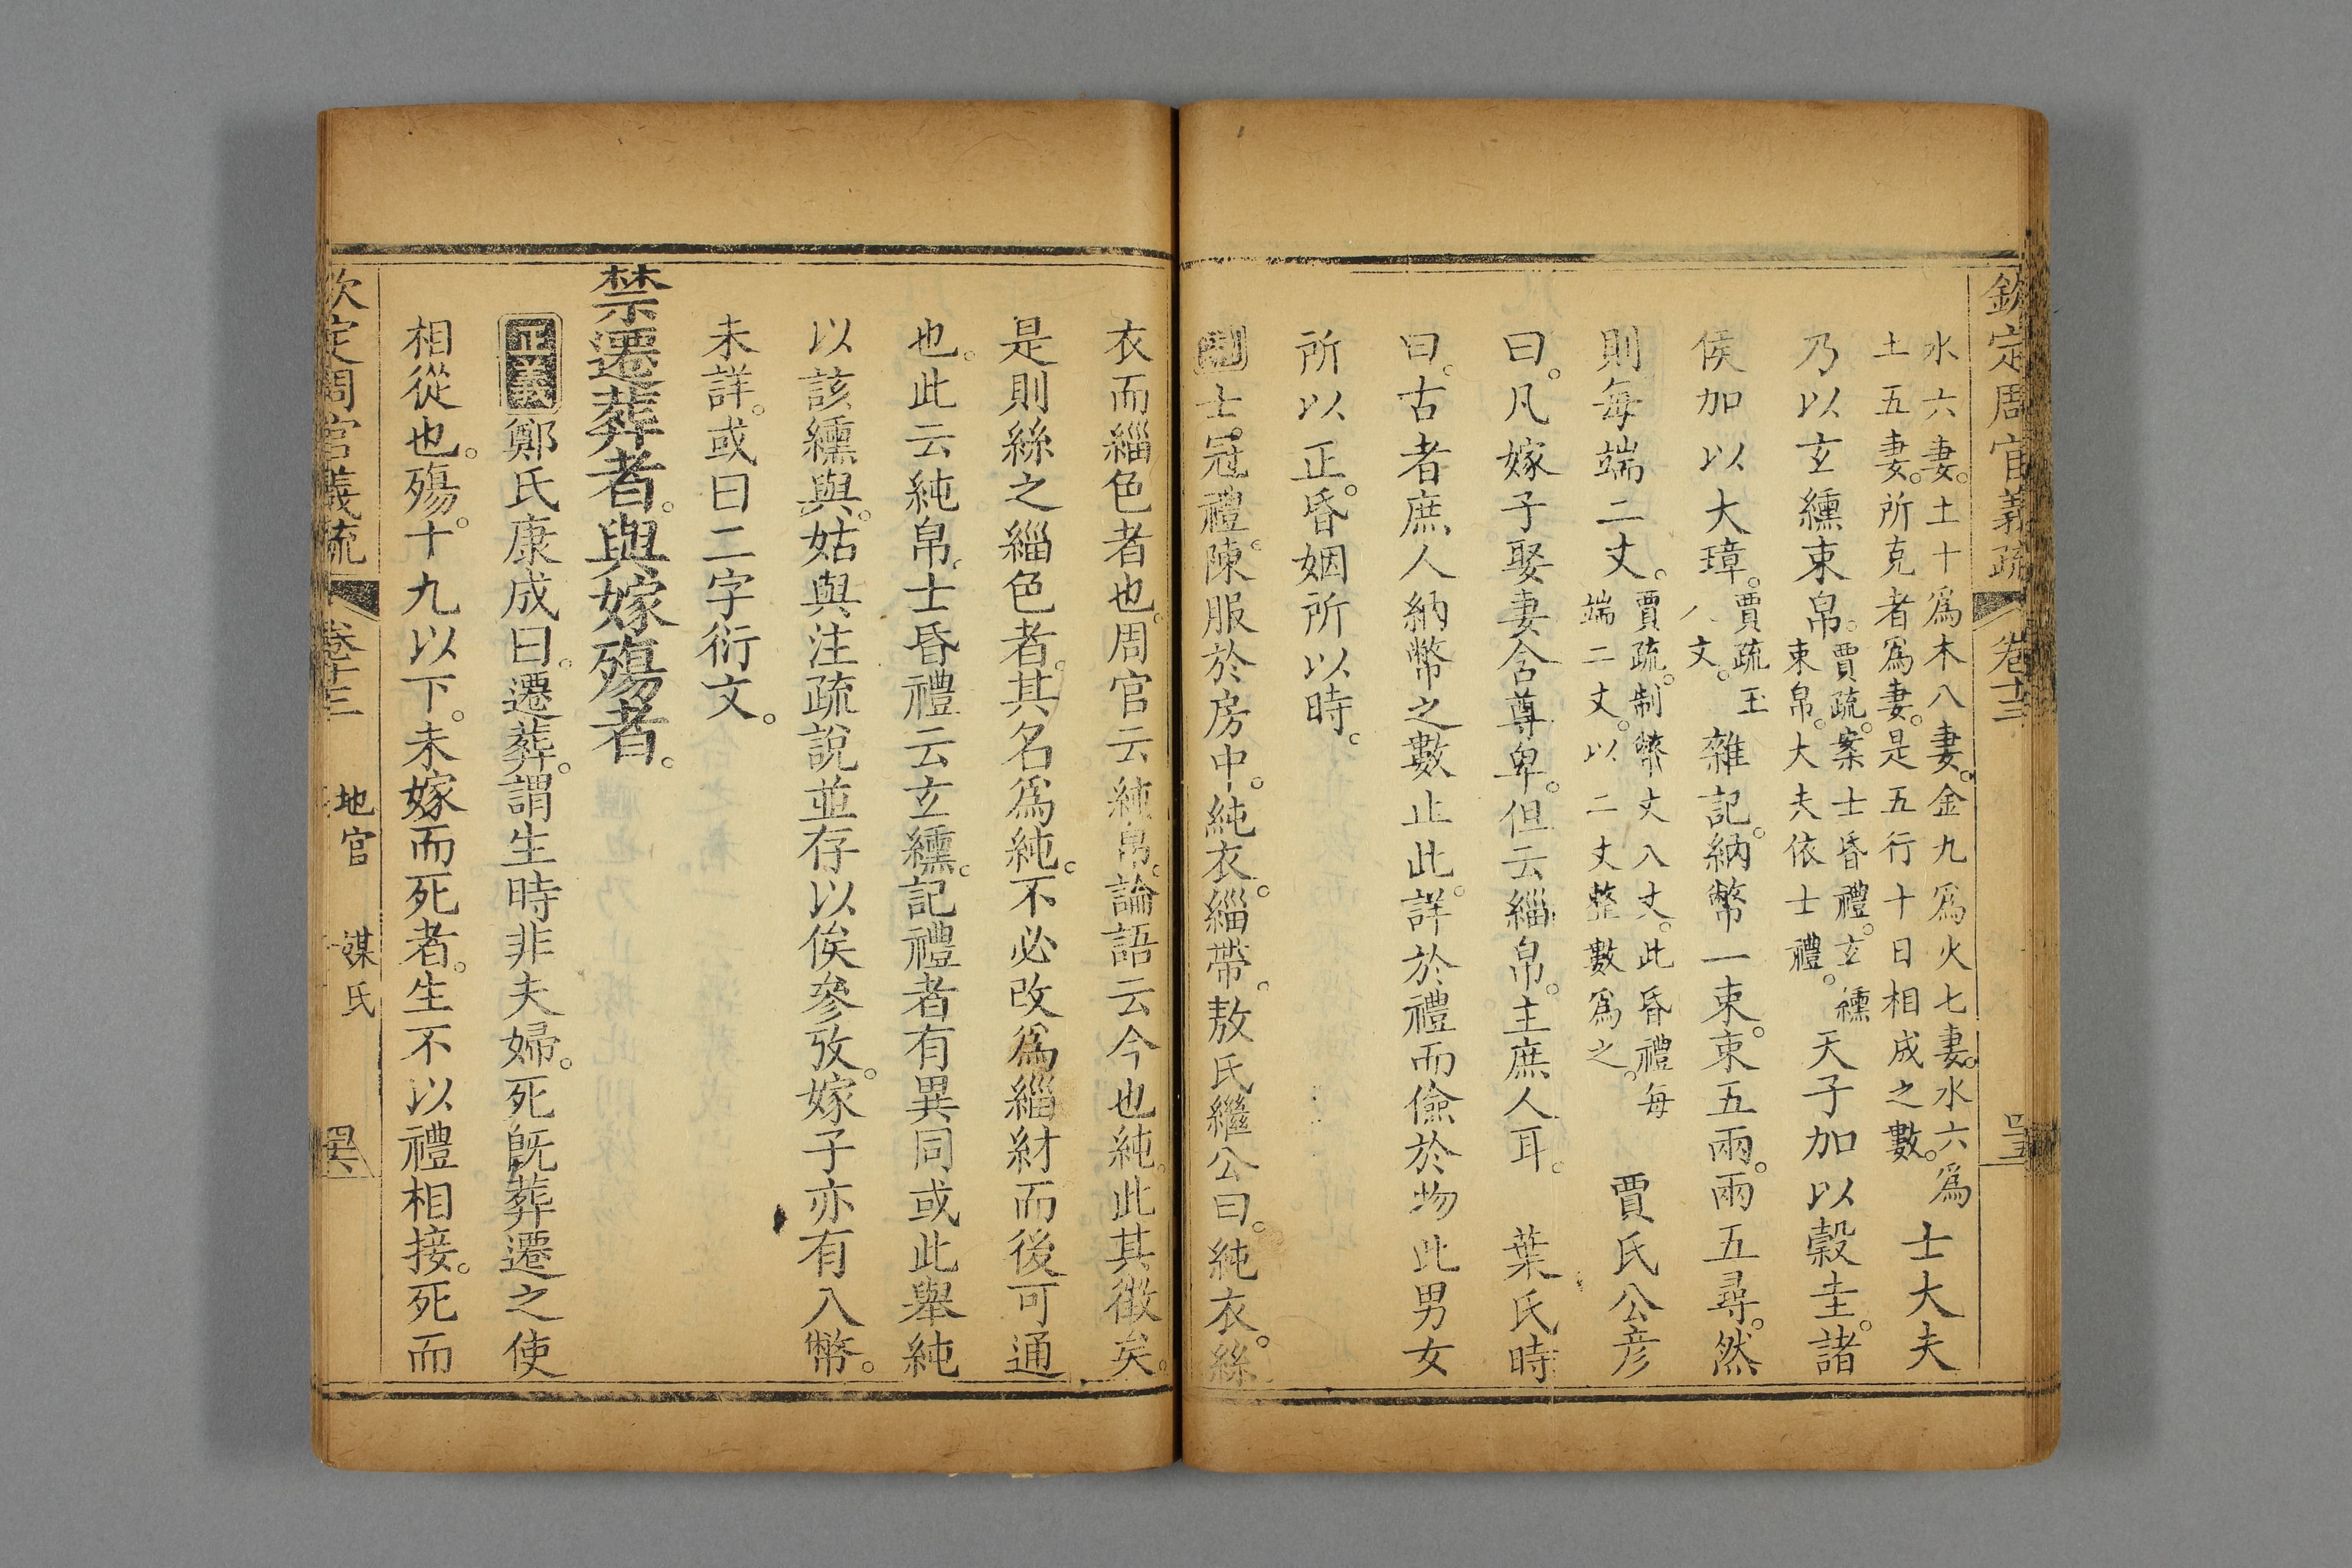 欽定周官義疏 卷十三
水六妻。土十爲木八妻。金九爲火七妻。水六爲
土五妻。所克者爲妻。是五行十日相成之數。
士大夫
乃以玄纁束帛。
賈疏。案士昏禮。玄纁
束帛。大夫依士禮。
天子加以穀圭。諸
侯加以大璋。
賈疏玉
人文。
雜記。納幣一束。束五兩。兩五尋。然
則每端二丈。
賈疏。制幣丈八丈。此昏禮每
端二丈。以二丈整數爲之。
賈氏公彦
曰。凡嫁子娶妻含尊卑。但云緇帛。主庶人耳。 葉氏時
曰。古者庶人納幣之數止此。詳於禮而儉於物此男女
所以正。昏姻所以時。
士。冠禮。陳服於房中。純衣。緇帶。敖氏繼公曰。純衣。絲
衣而緇色者也。周官云純帛。論語云今也純。此其徵矣。
是則絲之緇色者。其名爲純。不必改爲緇紂而後可通
也。此云純帛。士昏禮云玄纁。記禮者有異同或此舉純
以該纁與。姑與注疏說並存以俟參攷。嫁子亦有入幣。
未詳。或曰二字衍文。
禁遷葬者。與嫁殤者。
正義 鄭氏康成曰。遷葬。謂生時非夫婦。死旣葬遷之使
相從也。殤。十九以下。未嫁而死者。生不以禮相接。死而
欽定周官義疏 卷十三 地官 媒氏